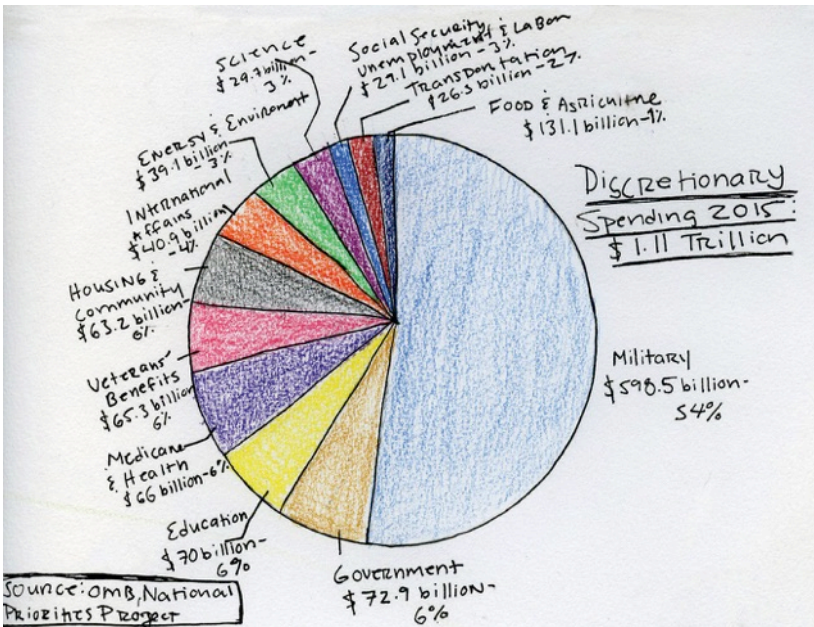 Science
$29.7 billion-
3%
Social Security
Unemployment & Labor
$29.1 billion - 3%
Transportation
$26.3 billion - 2%
Food & Agriculture
$131.1 billion-1%
Energy & Environment
$39.1 billion
- 3%
International
Affairs
$40.9 billion
- 4%
Housing &
Community
$63.2 billion-
6%
Veterans'
Benefits
$65.3 billion
6%
Medicare
& Health
$66 billion-6%
Education
$70 billion-
6%
Government
$72.9 billion-
6%
Military
$598.5 billion-
54%
Discretionary
Spending 2015:
$1.11 Trillion
Source: OMB, National
Priorities Project